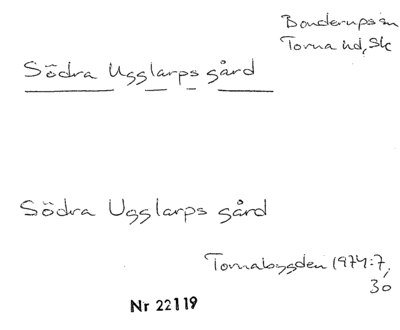 Bonderups sn
Torna hd, Sk
Södra Ugglarps gård
Södra Ugglarps gård
Tornabygden 1974:7,
30
Nr 22119